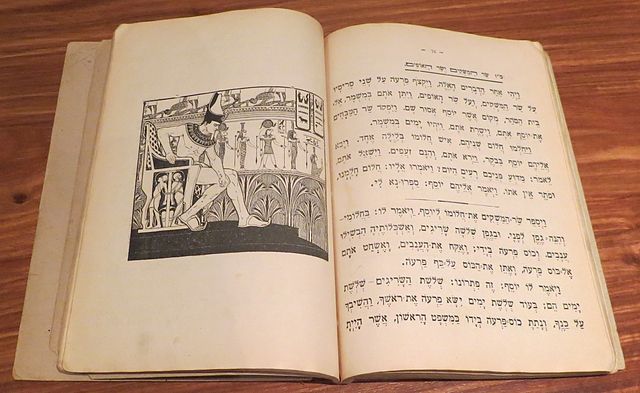 שַׂר הַמַּשְׁקִים וְשַׂר הָאוֹפִים
וַיְהִי אַחַר הַדְּבָרִים הָאֵלֶּה, וַיִּקְצֹף פַּרְעֹה עַל שְׁנֵי סָרִיסָיו
עַל שַׂר הַמַּשְׁקִים, וְעַל שַׂר הָאוֹפִים. וַיִּתֵּן אֹתָם בְּמִשְׁמָר, אֶל
בֵּית הַסֹּהַר, מְקוֹם אֲשֶׁר יוֹסֵף אָסוּר שָׁם. וַיִּפְקֹד שַׂר הַטַּבָּחִים
אֶת יוֹסֵף אִתָּם, וַיְשָׁרֶת אֹתָם. וַיִּהְיוּ יָמִים בְּמִשְׁמָר.
וַיַּחַלְמוּ חֲלוֹם שְׁנֵיהֶם, אִישׁ חֲלוֹמוֹ בְּלַיְלָה אֶחָד. וַיָּבֹא
אֲלֵיהֶם יוֹסֵף בַּבֹּקֶר. וַיַּרְא אֹתָם, וְהִנָּם זֹעֲפִים. וַיִּשְׁאַל אֹתָם
לֵאמֹר: מַדּוּעַ פְּנֵיכֶם רָעִים הַיּוֹם? וַיֹּאמְרוּ אֵלָיו: חֲלוֹם חָלַמְנוּ,
וּפֹתֵר אֵין אֹתוֹ. וַיֹּאמֶר אֲלֵיהֶם יוֹסֵף: סַפְּרוּ־נָא לִי.
וַיְסַפֵּר שַׂר־הַמַּשְׁקִים אֶת־חֲלוֹמוֹ לְיוֹסֵף. וַיֹּאמֶר לוֹ: בַּחֲלוֹמִי—
וְהִנֵּה־גֶפֶן לְפָנַי. וּבַגֶּפֶן שְׁלֹשָׁה שָׂרִיגִים, וְאַשְׁכְּלוֹתֶיהָ הִבְשִׁילוּ
עֲנָבִים. וְכוֹס פַּרְעֹה בְּיָדִי. וָאֶקַּח אֶת־הָעֲנָבִים, וָאֶשְׂחַט אֹתָם
אֶל־כּוֹס פַּרְעֹה, וָאֶתֵּן אֶת־הַכּוֹס עַל־כַּף פַּרְעֹה.
וַיֹּאמֶר לוֹ יוֹסֵף: זֶה פִּתְרוֹנוֹ: שְׁלֹשֶׁת הַשָּׂרִיגִים — שְׁלֹשֶׁת
יָמִים הֵם; בְּעוֹד שְׁלֹשֶׁת יָמִים יִשָּׂא פַרְעֹה אֶת־רֹאשְׁךָ, וַהֲשִׁיבְךָ
עַל כַּנֶּךָ, וְנָתַתָּ כוֹס־פַּרְעֹה בְּיָדוֹ כַּמִּשְׁפָּט הָרִאשׁוֹן, אֲשֶׁר הָיִיתָ